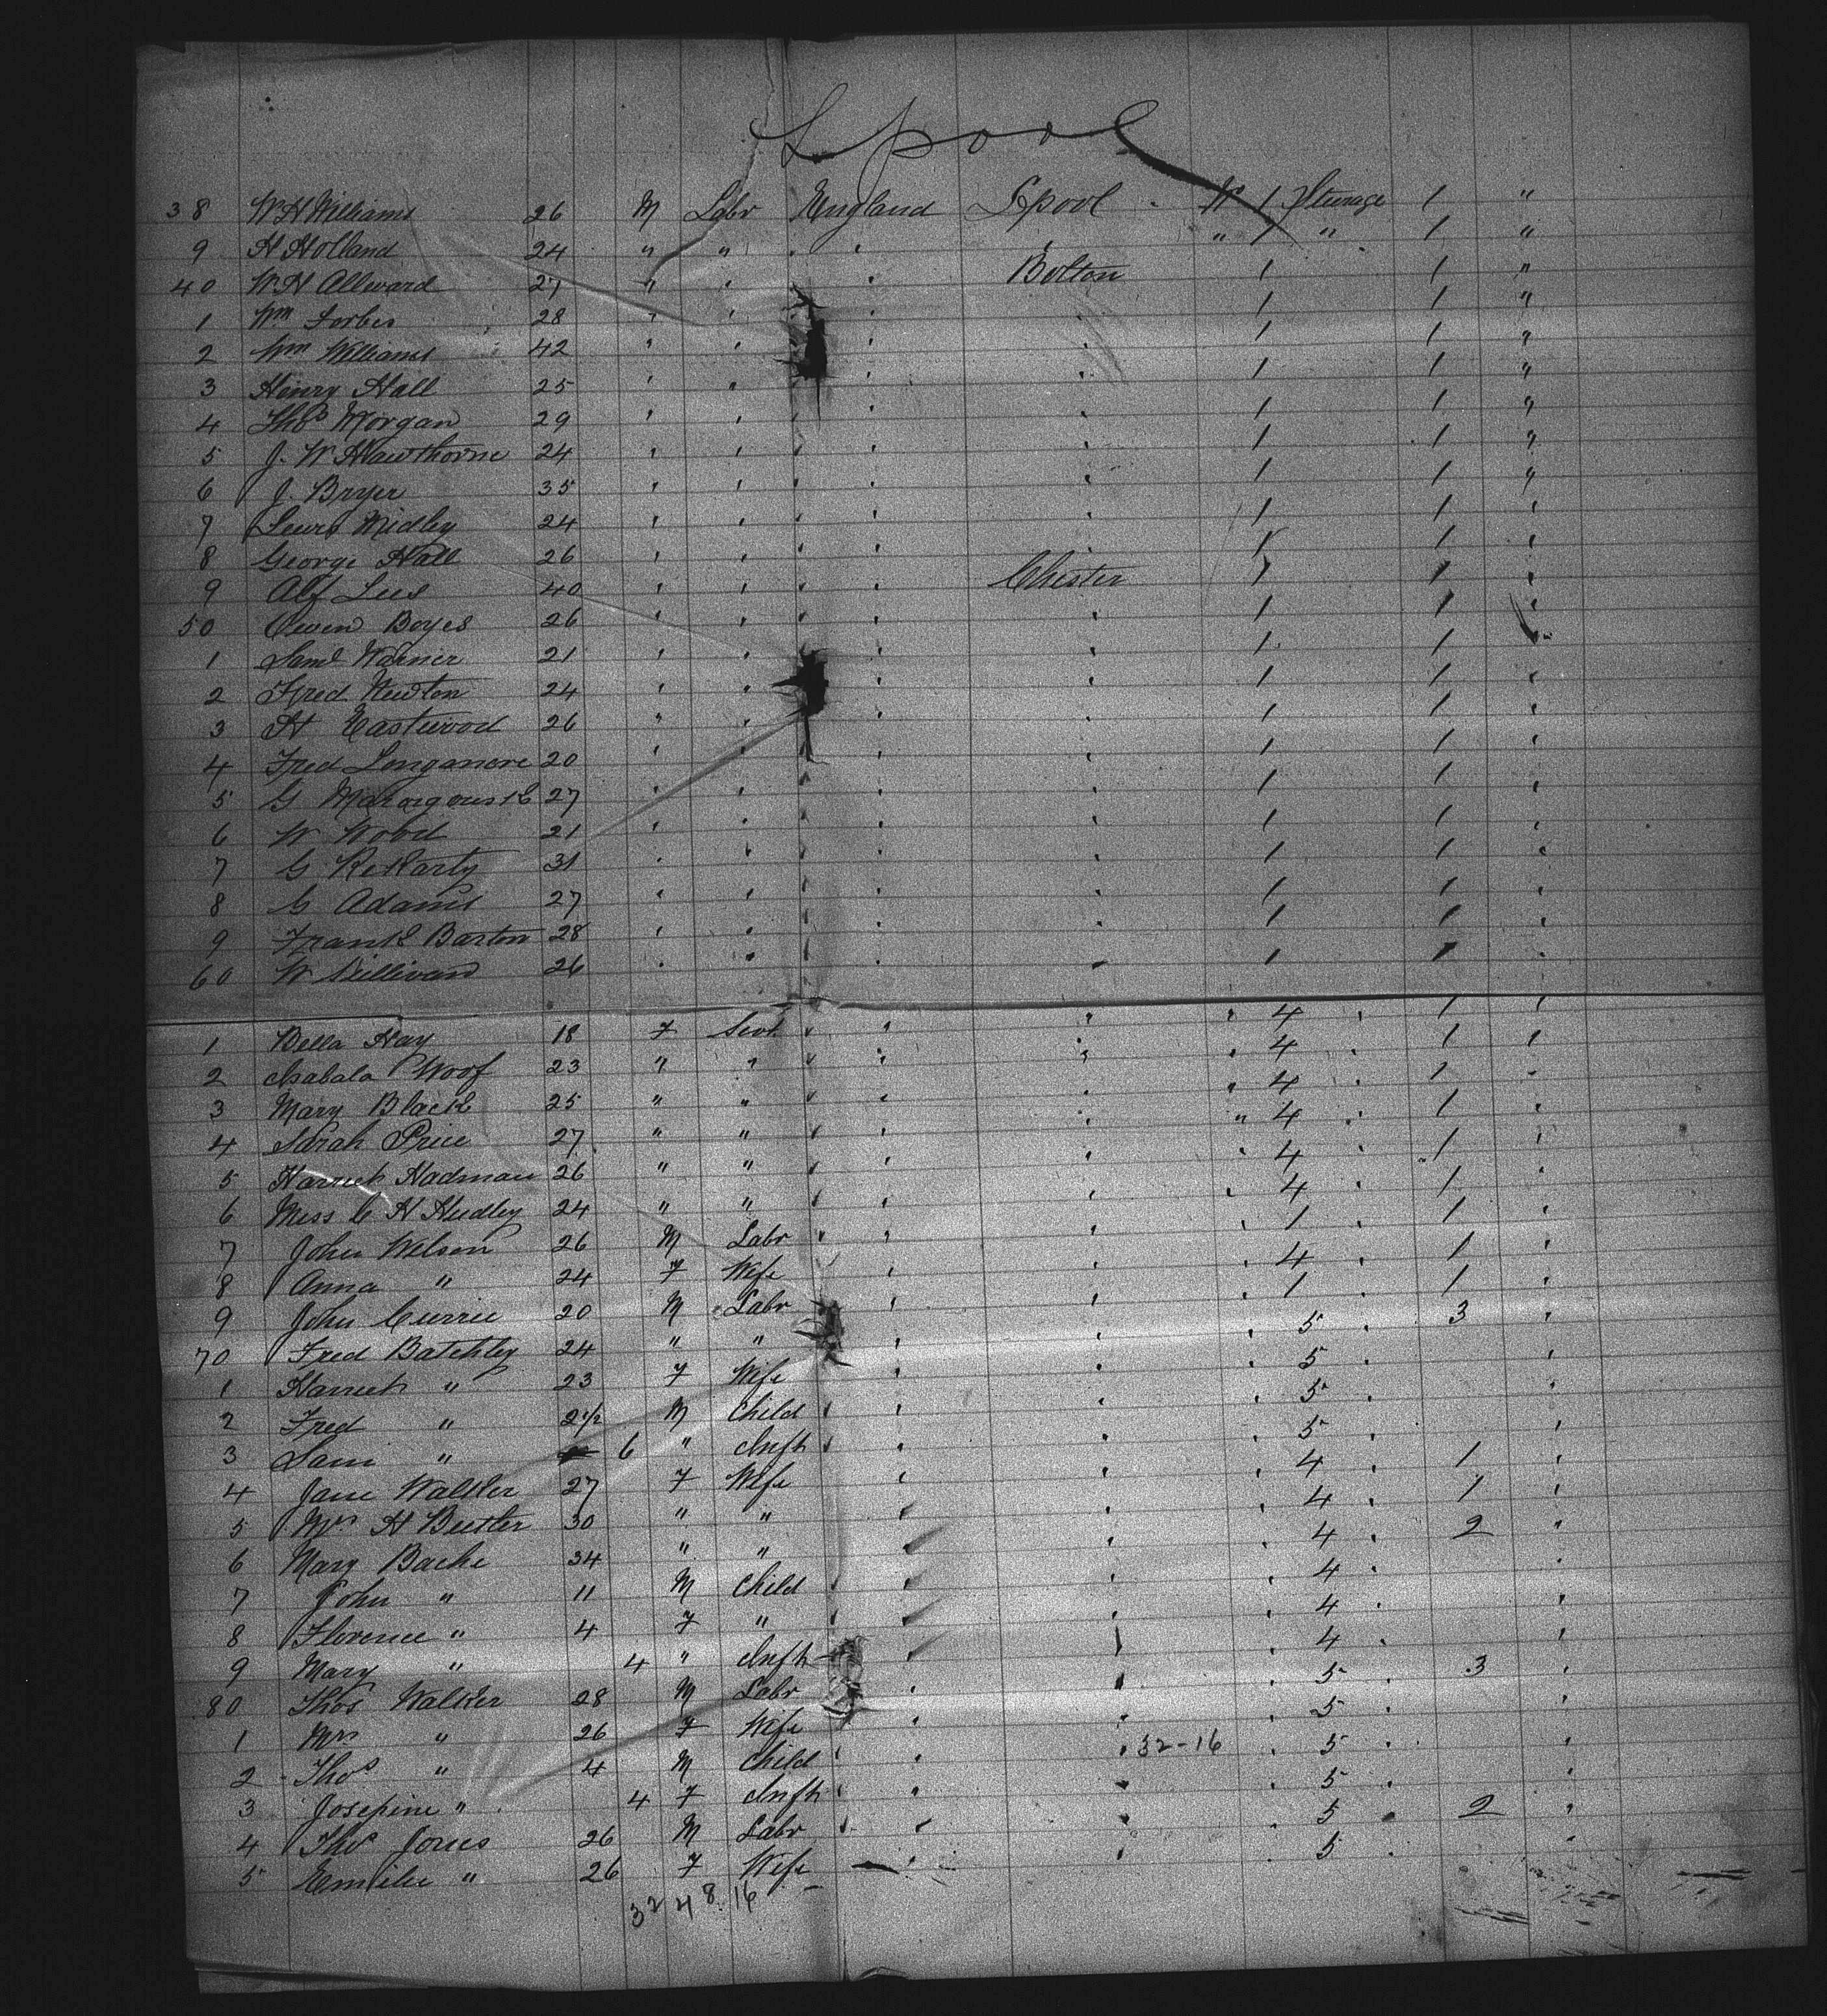 Lpool
38 W H Williams 26 M Labr England Lpool " 1 Steerage 1 "
9 H Holland 24 " " " ' ' " 1 " 1 "
40 W. H Allward 27 " ' ' Bolton 1 1 "
1 Wm Forbes 28 ' ' ' ' 1 1 "
2 Wm Williams 42 ' ' ' ' 1 1 "
3 Henry Hall 25 ' " ' ' 1 1 "
4 Thos Morgan 29 ' ' ' ' ' 1 1 "
5 J. W Hawthorne 24 ' ' ' ' ' 1 1 "
6 J. Bryer 35 ' ' ' ' ' 1 1 "
7 Lewis Midley 24 ' ' ' ' ' 1 1 '
8 George Hall 26 ' ' ' ' ' 1 1 '
9 Alf Lees 40 ' ' ' ' Chester 1 1 '
50 Owen Boyes 26 ' ' ' ' ' 1 1 '
1 Saml Warner 21 ' ' ' ' 1 1 '
2 Fred Newton 24 ' ' ' ' 1 1 '
3 H Eastwood 26 " ' ' ' 1 1 '
4 Fred Longamore 20 ' ' ' ' 1 1 '
5 G 27 ' ' ' ' ' 1 1 '
6 W Wood 21 ' ' ' ' ' 1 1 '
7 G 31 ' ' ' ' ' 1 1 '
8 G Adams 27 ' ' ' ' ' 1 1 '
9 Frank Barton 28 ' ' ' ' ' 1 1 '
60 W 26 ' ' ' ' ' 1 1 '
1 Bella Hay 18 F Servt ' ' ' ' 4 ' 1 '
2 Isabala Woof 23 " " ' ' ' ' 4 ' 1 '
3 Mary Black 25 " " ' ' ' ' 4 ' 1 '
4 Sarah Price 27 " " ' ' ' " 4 ' 1 '
5 Harriet Hadman 26 " " ' ' ' ' 4 ' 1 '
6 Miss C H Hudley 24 " " ' ' ' ' 4 ' 1 '
7 John Wilson 26 M Labr ' ' ' ' 1 ' 1 '
8 Anna " 24 F Wife ' ' ' 4 ' 1 '
9 John Currie 20 M Labr ' ' ' 1 ' 1 '
70 Fred Batchley 24 " " ' ' ' 5 ' 3 '
1 Harriet " 23 F Wife ' ' ' 5 ' '
2 Fred " 2 1/2 M Child ' ' ' ' 5 ' '
3 Sam " 6 " Inft ' ' ' ' 5 ' '
4 Jane Walker 27 F Wife ' ' ' 4 ' 1 '
5 Mrs H Butler 30 " " ' ' ' 4 ' 1 '
6 Mary Bache 34 " " ' ' ' 4 ' 2 '
7 John " 11 M Child ' ' ' ' 4 ' '
8 Florence " 4 F " ' ' ' ' 4 ' '
9 Mary " 4 " Inft ' ' ' 4 ' '
80 Thos Walker 28 M Labr ' ' ' 5 ' 3 '
1 Mrs " 26 F Wife ' ' ' 5 ' '
2 Thos " 4 M Child ' ' ' 32-16 ' 5 ' '
3 Josepine " 4 F Inft ' ' ' ' 5 ' '
4 Thos Jones 26 M Labr ' ' ' ' 5 ' 2 '
5 Emilie " 26 F Wife ' ' ' 5 ' '
32 48 16